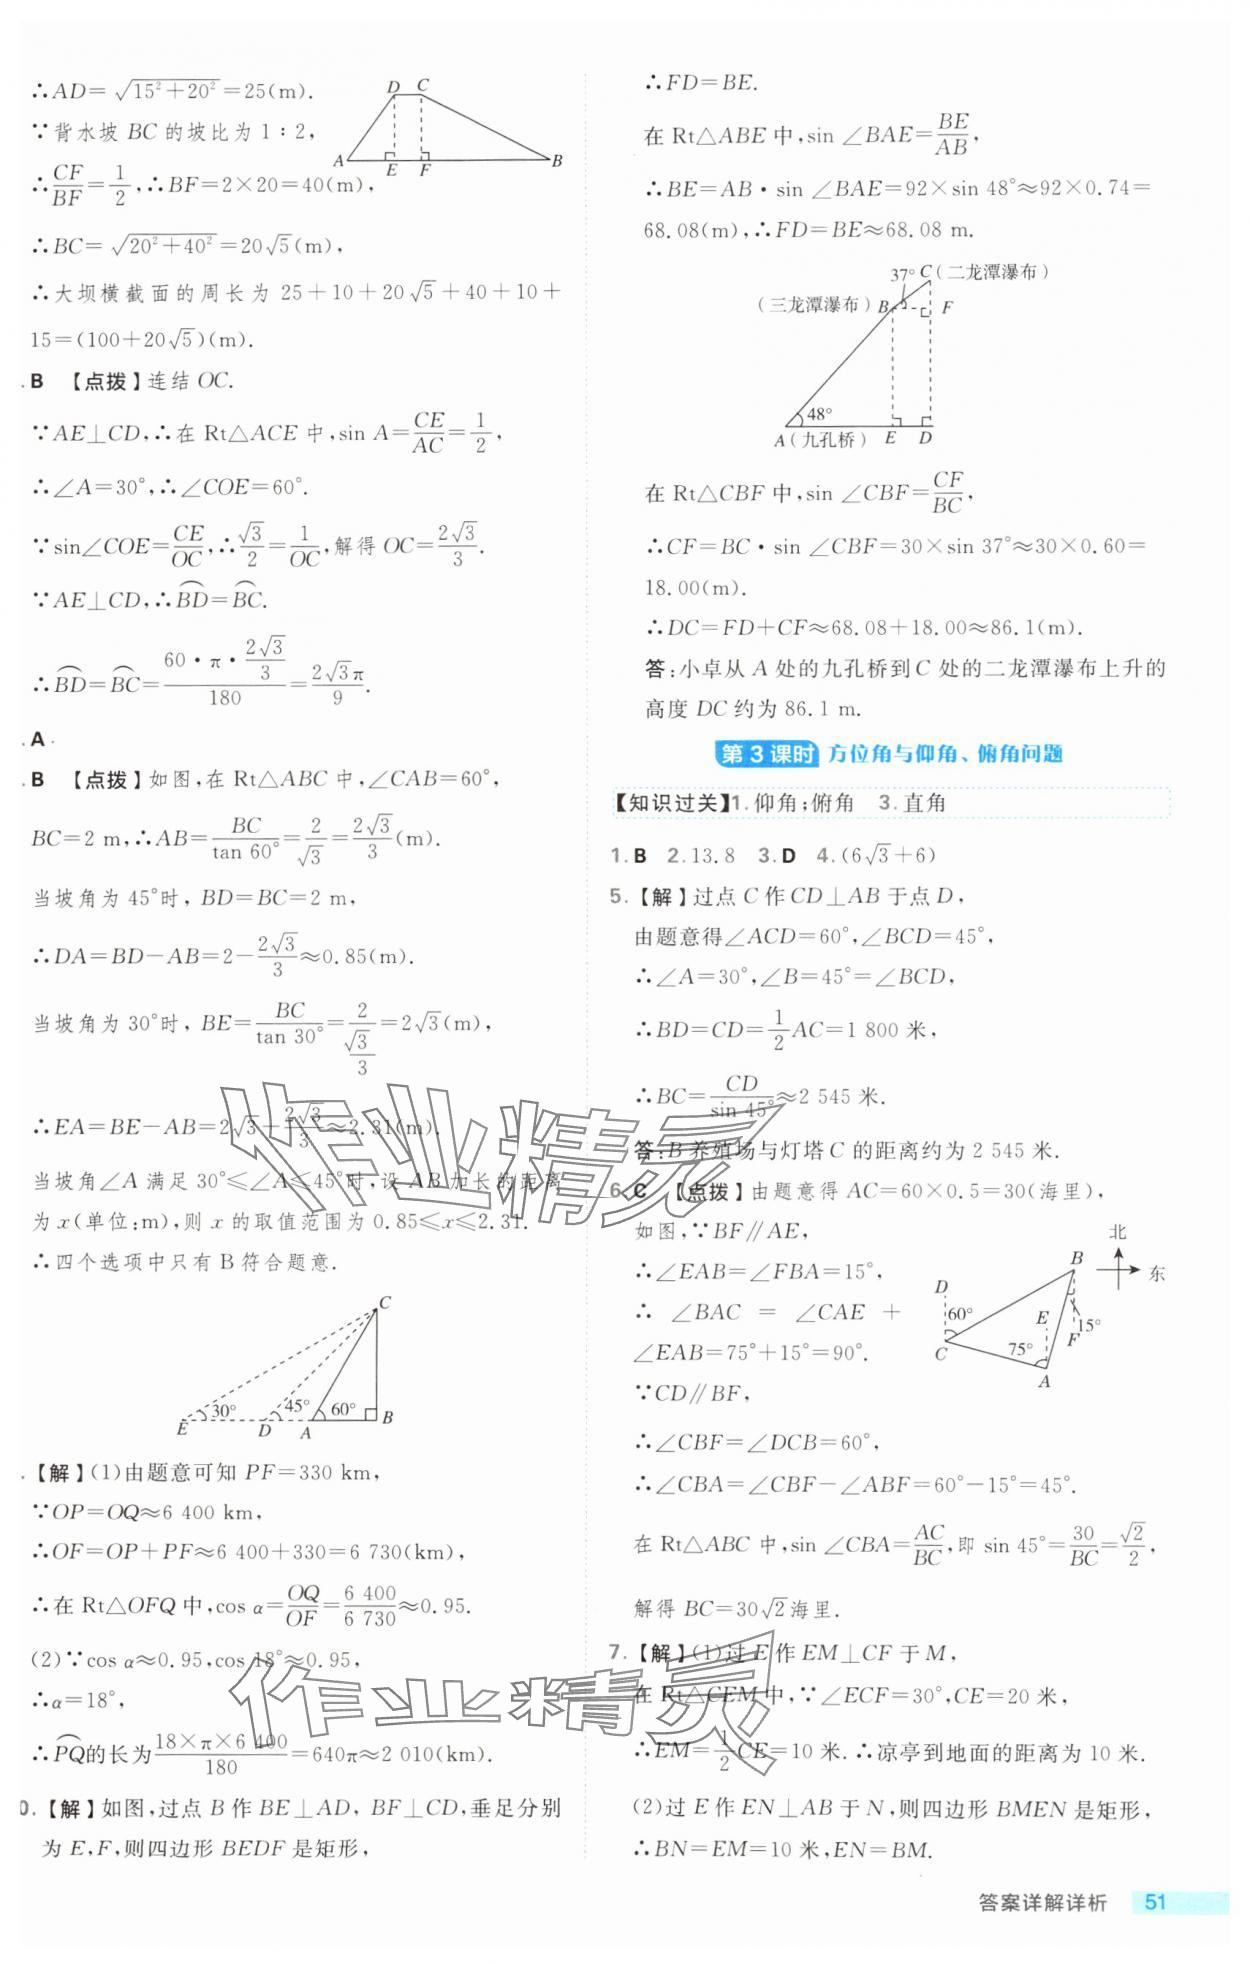 ∴AD=√(15²+20²)=25(m).
∵背水坡 BC 的坡比为 1∶2,
∴CF/BF=1/2,∴BF=2×20=40(m),
∴BC=√(20²+40²)=20√5(m),
∴大坝横截面的周长为 25+10+20√5+40+10+
15=(100+20√5)(m).
D C
A E F B
. B 【点拨】连结 OC.
∵AE⊥CD,∴在 Rt△ACE 中,sin A=CE/AC=1/2,
∴∠A=30°,∴∠COE=60°.
∵sin∠COE=CE/OC,∴√3/2=1/OC,解得 OC=2√3/3.
∵AE⊥CD,∴⌒BD=⌒BC.
∴⌒BD=⌒BC=(60·π·2√3/3)/180=2√3π/9.
. A
. B 【点拨】如图,在 Rt△ABC 中,∠CAB=60°,
BC=2 m,∴AB=BC/tan 60°=2/√3=2√3/3(m).
当坡角为 45°时,BD=BC=2 m,
∴DA=BD-AB=2-2√3/3≈0.85(m).
当坡角为 30°时,BE=BC/tan 30°=2/(√3/3)=2√3(m),
∴EA=BE-AB=2√3-2√3/3≈2.31(m).
当坡角∠A 满足 30°≤∠A≤45°时,设 AB 加长的距离
为 x(单位:m),则 x 的取值范围为 0.85≤x≤2.31.
∴四个选项中只有 B 符合题意.
C
30° 45° 60°
E D A B
. 【解】(1)由题意可知 PF=330 km,
∵OP=OQ≈6 400 km,
∴OF=OP+PF≈6 400+330=6 730(km),
∴在 Rt△OFQ 中,cos α=OQ/OF=6 400/6 730≈0.95.
(2)∵cos α≈0.95,cos 18°≈0.95,
∴α=18°,
∴⌒PQ的长为(18×π×6 400)/180=640π≈2 010(km).
0. 【解】如图,过点 B 作 BE⊥AD, BF⊥CD,垂足分别
为 E,F,则四边形 BEDF 是矩形,
∴FD=BE.
在 Rt△ABE 中,sin ∠BAE=BE/AB,
∴BE=AB·sin ∠BAE=92×sin 48°≈92×0.74=
68.08(m),∴FD=BE≈68.08 m.
37° C(二龙潭瀑布)
(三龙潭瀑布)B F
48°
A(九孔桥) E D
在 Rt△CBF 中,sin ∠CBF=CF/BC,
∴CF=BC·sin ∠CBF=30×sin 37°≈30×0.60=
18.00(m).
∴DC=FD+CF≈68.08+18.00≈86.1(m).
答:小卓从 A 处的九孔桥到 C 处的二龙潭瀑布上升的
高度 DC 约为 86.1 m.
第 3 课时 方位角与仰角、俯角问题
【知识过关】1.仰角;俯角 3.直角
1. B 2. 13.8 3. D 4. (6√3+6)
5. 【解】过点 C 作 CD⊥AB 于点 D,
由题意得∠ACD=60°,∠BCD=45°,
∴∠A=30°,∠B=45°=∠BCD,
∴BD=CD=1/2AC=1 800 米,
∴BC=CD/sin 45°≈2 545 米.
答:B 养殖场与灯塔 C 的距离约为 2 545 米.
6. C 【点拨】由题意得 AC=60×0.5=30(海里),
如图,∵BF∥AE,
∴∠EAB=∠FBA=15°,
∴ ∠BAC = ∠CAE +
∠EAB=75°+15°=90°.
∵CD∥BF,
北
东
B
D
60° E 15°
F
C 75°
A
∴∠CBF=∠DCB=60°,
∴∠CBA=∠CBF-∠ABF=60°-15°=45°.
在 Rt△ABC 中,sin ∠CBA=AC/BC,即 sin 45°=30/BC=√2/2,
解得 BC=30√2海里.
7. 【解】(1)过 E 作 EM⊥CF 于 M,
在 Rt△CEM 中,∵∠ECF=30°,CE=20 米,
∴EM=1/2CE=10 米.∴凉亭到地面的距离为 10 米.
(2)过 E 作 EN⊥AB 于 N,则四边形 BMEN 是矩形,
∴BN=EM=10 米,EN=BM.
答案详解详析 51
作业精灵
作业精灵